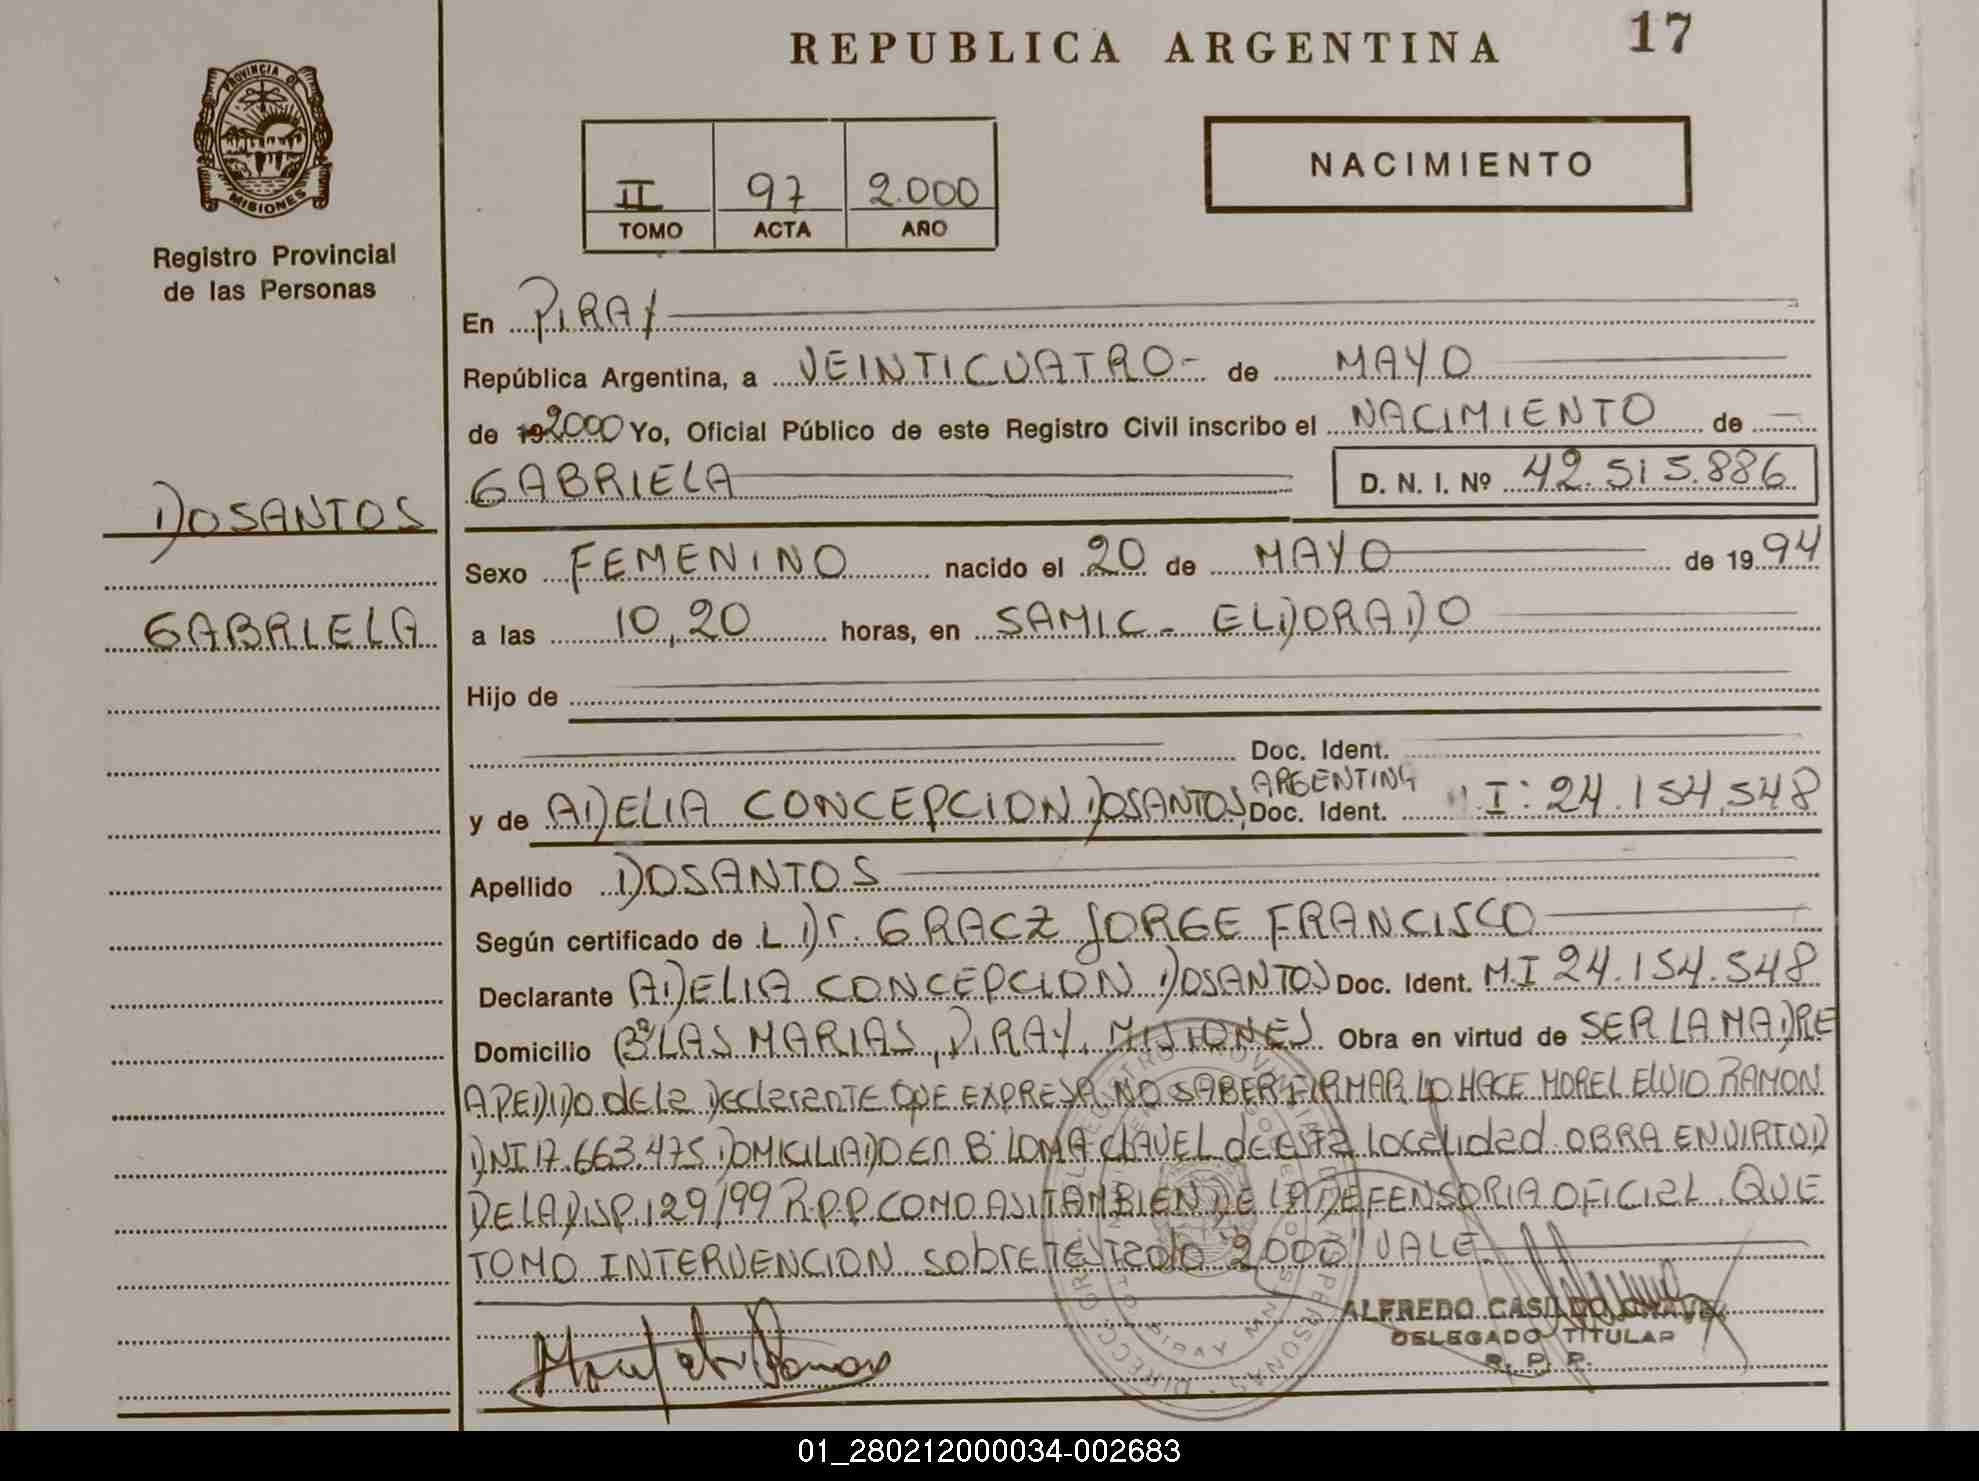 REPUBLICA ARGENTINA 17
PROVINCIA DE MISIONES
Registro Provincial
de las Personas
II 97 2.000
TOMO ACTA AÑO
NACIMIENTO
En PIRAY
República Argentina, a VEINTICUATRO- de MAYO
de 192000 Yo, Oficial Público de este Registro Civil inscribo el NACIMIENTO de
GABRIELA D. N. I. Nº 42.515.886
DOSANTOS
GABRIELA
Sexo FEMENINO nacido el 20 de MAYO de 1994
a las 10,20 horas, en SAMIC - ELDORADO
Hijo de
Doc. Ident.
y de ADELIA CONCEPCION DOSANTOS, ARGENTINA Doc. Ident. M.I: 24.154.548
Apellido DOSANTOS
Según certificado de L Dr. GRACZ JORGE FRANCISCO
Declarante ADELIA CONCEPCION DOSANTOS Doc. Ident. M.I 24.154.548
Domicilio Bº LAS MARIAS, PIRAY, MISIONES Obra en virtud de SER LA MADRE
A PEDIDO de la DeclaranTE QUE EXPRESA NO SABER FIRMAR LO HACE MOREL ELVIO RAMON
DNI 17.663.475 DOMICILIADO En Bº LOMA CLAVEL de ESTa localidad. OBRA EN VIRTUD
DE LA DISP. 129/99 R.P.P. COMO ASI TAMBIEN DE LA DEFENSORIA OFICIAL QUE
TOMO INTERVENCION sobreTESTado 2000 VALE.
ALFREDO CASILDO CHAVEZ
DELEGADO TITULAR
R. P. P.
01_280212000034-002683